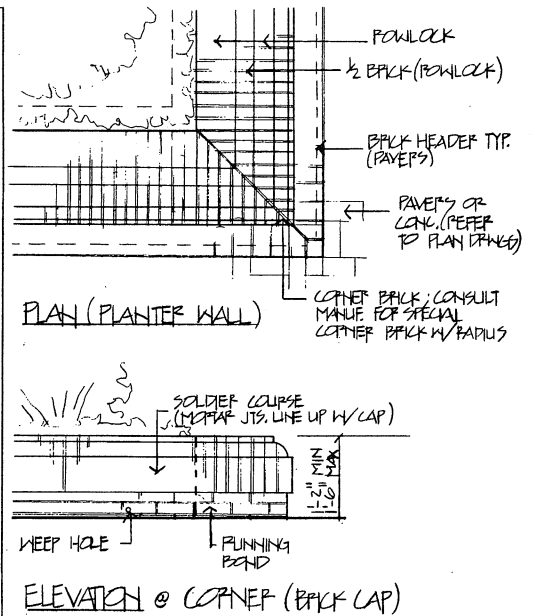 ROWLOCK
½ BRICK (ROWLOCK)
BRICK HEADER TYP.
(PAVERS)
PAVERS OR
CONC. (REFER
TO PLAN DRWGS)
CORNER BRICK; CONSULT
MANUF. FOR SPECIAL
CORNER BRICK W/RADIUS
PLAN (PLANTER WALL)
SOLDIER COURSE
(MORTAR JTS. LINE UP W/CAP)
1'-2" MIN
1'-6" MAX
WEEP HOLE
RUNNING
BOND
ELEVATION @ CORNER (BRICK CAP)